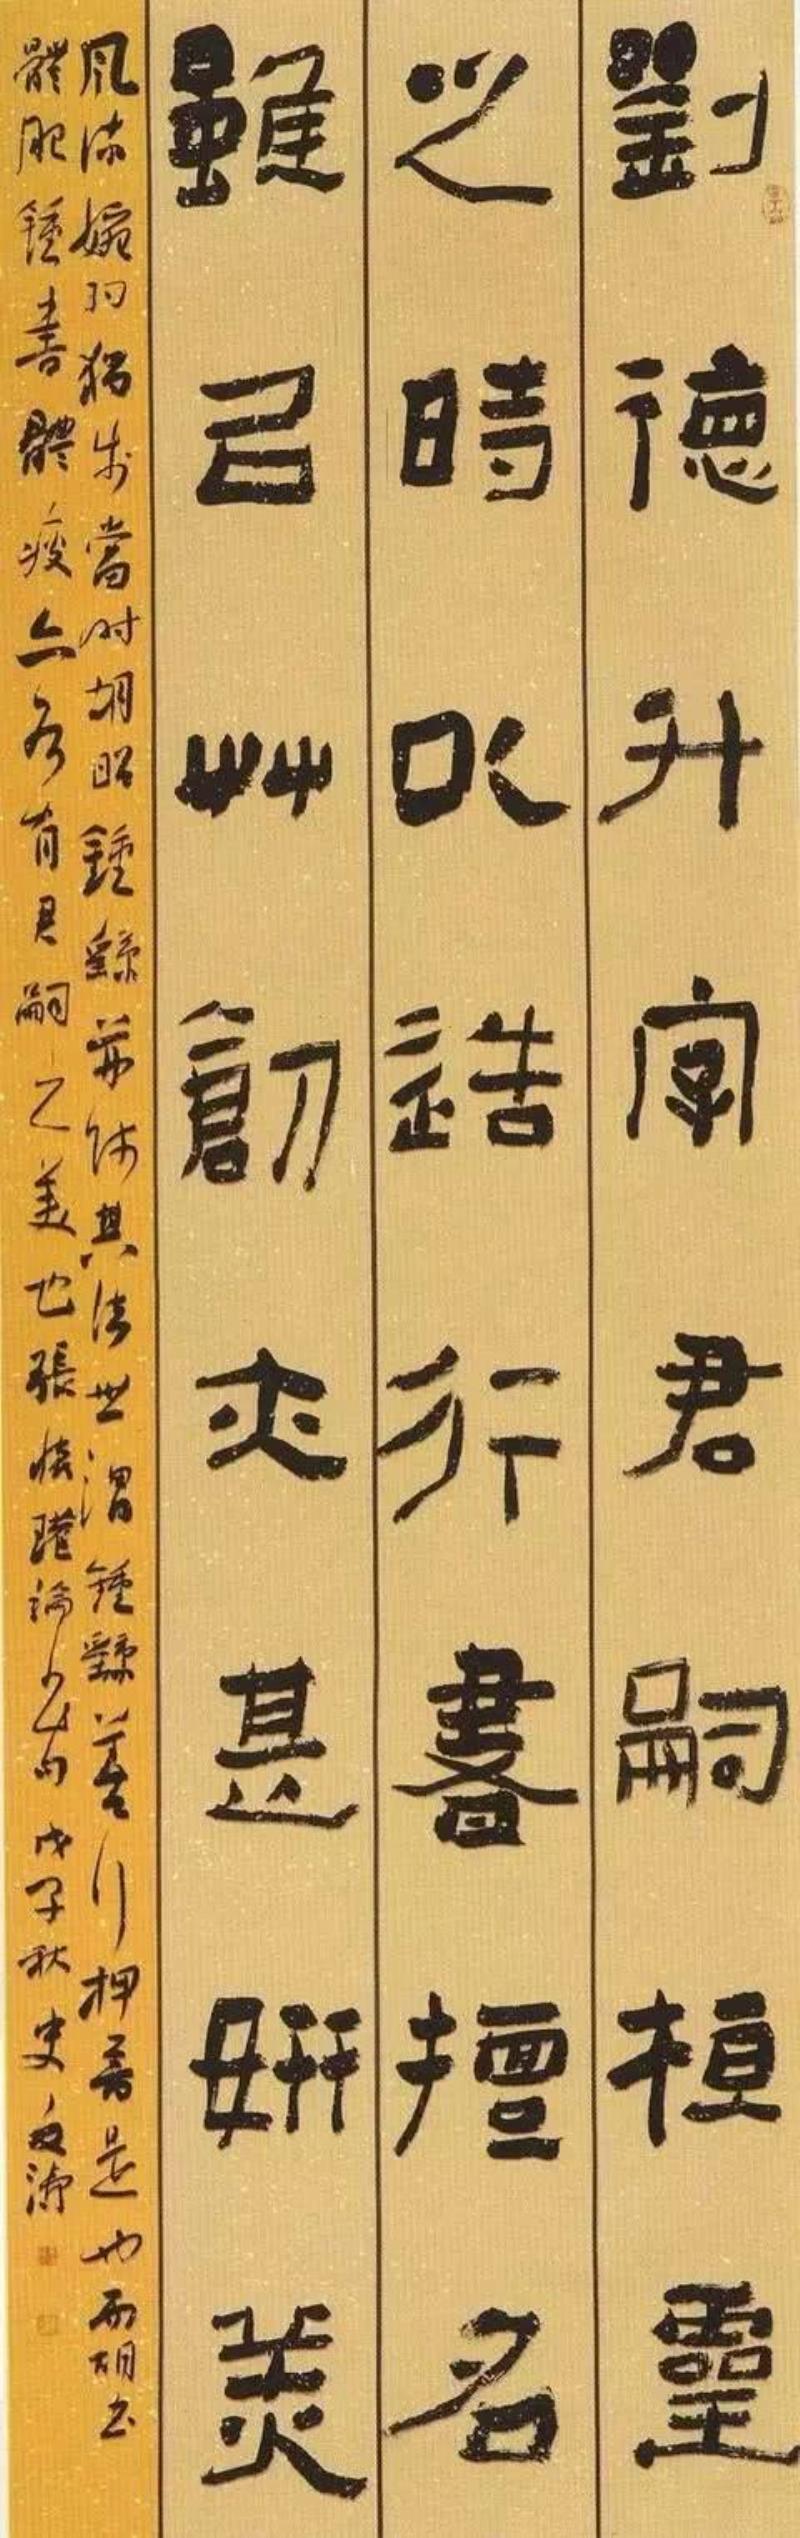 劉德升字君嗣桓靈
之時以誥行書擅名
雖己艸創亦甚妍美
風流婉約獨步當時胡昭鍾繇并師其法世謂鍾繇善行押書是也而胡書
體肥鍾書體瘦亦各有君嗣之美也張懷瓘論書一首句戊子秋史文濤